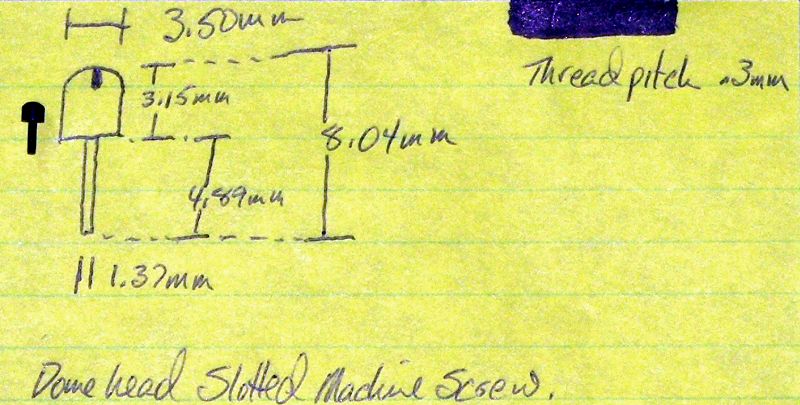 3.50mm
Thread pitch .3mm
3.15mm
8.04mm
4.89mm
1.37mm
Dome head Slotted Machine Screw.